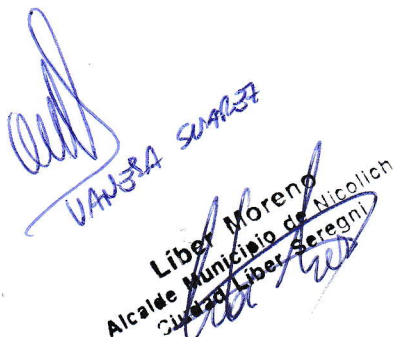 VANESA SUAREZ
Liber Moreno
Alcalde Municipio de Nicolich
Ciudad Liber Seregni